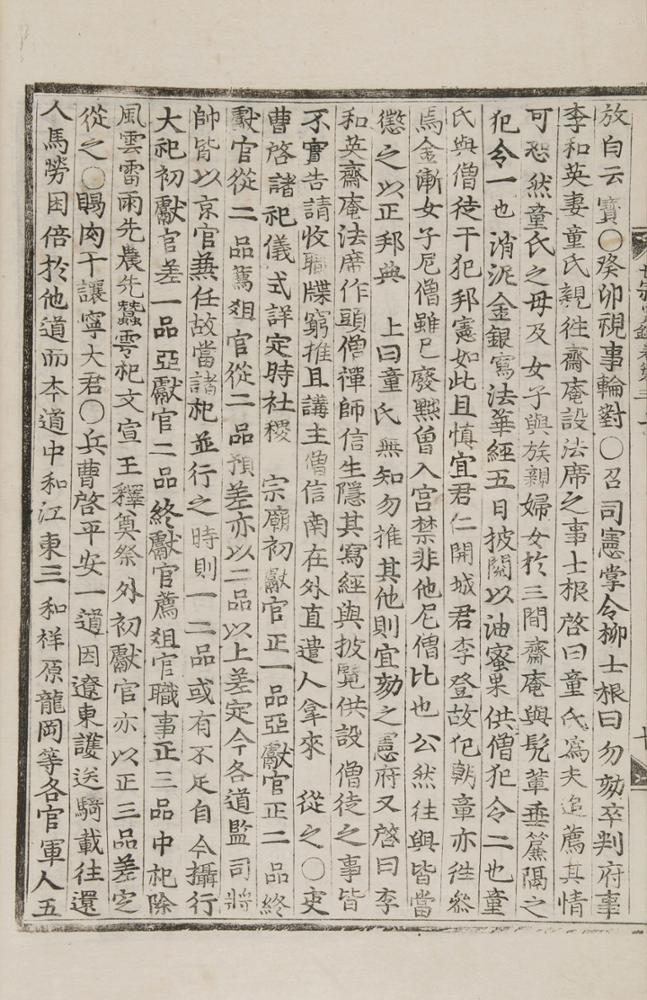 放自云寶○癸卯視事輪對○召司憲掌令柳士根曰勿劾卒判府事
李和英妻童氏親徃齋庵設法席之事士根啓曰童氏爲夫追薦其情
可恕然童氏之母及女子與族親婦女於三間齋庵與髠輩垂簾隔之
犯令一也消泥金銀寫法華經五日披閱以油蜜果供僧犯令二也童
氏與僧徒干犯邦憲如此且愼宜君仁開城君李登故犯朝章亦徃參
焉金漸女子尼僧雖已廢黜曾入宮禁非他尼僧比也公然徃與皆當
懲之以正邦典 上曰童氏無知勿推其他則宜劾之憲府又啓曰李
和英齋庵法席作頭僧禪師信生隱其寫經與披覽供設僧徒之事皆
不實告請收職牒窮推且講主僧信南在外直遣人拿來 從之○吏
曹啓諸祀儀式詳定時社稷 宗廟初獻官正一品亞獻官正二品終
獻官從二品薦俎官從二品預差亦以二品以上差定今各道監司將
帥皆以京官兼任故當諸祀並行之時則一二品或有不足自今攝行
大祀初獻官差一品亞獻官二品終獻官薦俎官職事正三品中祀除
風雲雷雨先農先蠶雩祀文宣王釋奠祭外初獻官亦以正三品差定
從之○賜肉于讓寧大君○兵曹啓平安一道因遼東護送騎載往還
人馬勞困倍於他道而本道中和江東三和祥原龍岡等各官軍人五